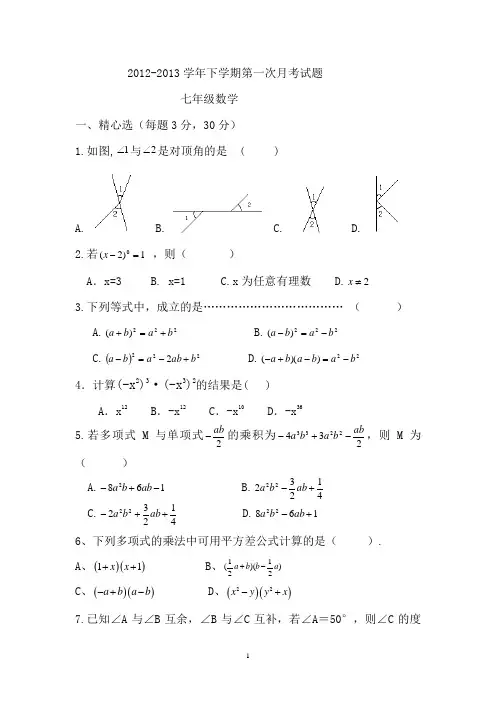 2012-2013学年下学期第一次月考试题
七年级数学
一、精心选（每题3分，30分）
1.如图,∠1与∠2是对顶角的是 ( )
1 2 1 2 1 2 1 2
A. B. C. D.
2.若(x−2)⁰=1 ，则（ ）
A．x=3 B. x=1 C.x为任意有理数 D.x≠2
3.下列等式中，成立的是……………………………… （ ）
A.(a+b)²=a²+b² B.(a−b)²=a²−b²
C.(a−b)²=a²−2ab+b² D.(−a+b)(a−b)=a²−b²
4．计算(-x²)³·(-x³)²的结果是( )
A．x¹² B．-x¹² C．-x¹⁰ D．-x³⁶
5.若多项式M与单项式−ab/2的乘积为−4a³b³+3a²b²−ab/2，则M为
（ ）
A.−8a²b+6ab−1 B.2a²b²−3/2ab+1/4
C.−2a²b²+3/2ab+1/4 D.8a²b²−6ab+1
6、下列多项式的乘法中可用平方差公式计算的是（ ）.
A、(1+x)(x+1) B、(1/2a+b)(b−1/2a)
C、(−a+b)(a−b) D、(x²−y)(y²+x)
7.已知∠A与∠B互余，∠B与∠C互补，若∠A＝50°，则∠C的度
1